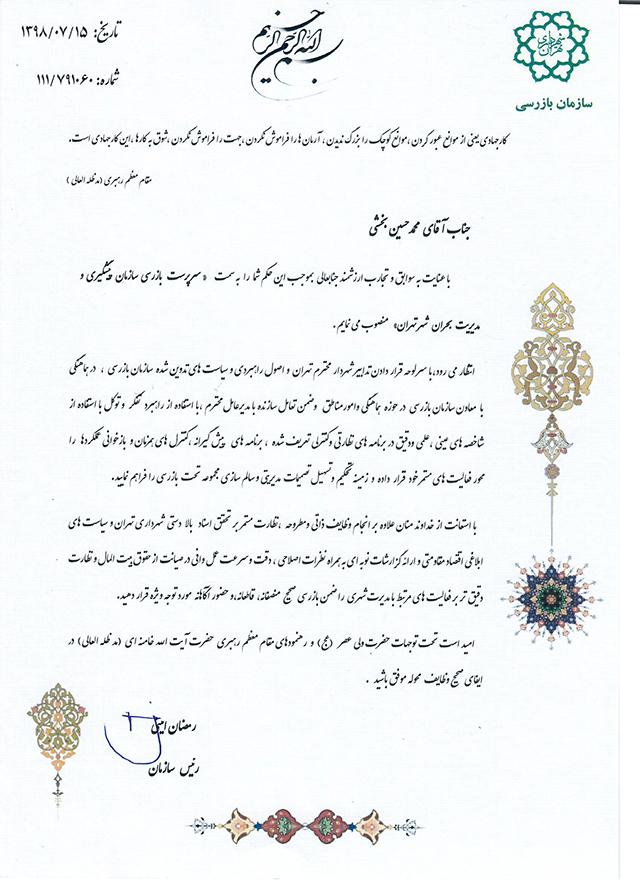 بسم الله الرحمن الرحیم
شهرداری تهران
سازمان بازرسی
تاریخ: ۱۳۹۸/۰۷/۱۵
شماره: ۱۱۱/۷۹۱۰۶۰
کار جهادی یعنی از موانع عبور کردن ،موانع کوچک را بزرگ ندیدن ، آرمان ها را فراموش نکردن ،جهت را فراموش نکردن ،شوق به کارها ،این کار جهادی است.
مقام معظم رهبری (مد ظله العالی )
جناب آقای محمد حسین بخشی
با عنایت به سوابق و تجارب ارزشمند جنابعالی بموجب این حکم شما را به سمت « سرپرست بازرسی سازمان پیشگیری و
مدیریت بحران شهر تهران» منصوب می نمایم .
انتظار می رود،با سرلوحه قرار دادن تدابیر شهردار محترم تهران و اصول راهبردی و سیاست های تدوین شده سازمان بازرسی ، در هماهنگی
با معاون سازمان بازرسی در حوزه هماهنگی و امور مناطق وضمن تعامل سازنده با مدیرعامل محترم ،با استفاده از راهبرد تفکر و توکل با استفاده از
شاخصه های عینی ، علمی ودقیق در برنامه های نظارتی وکنترلی تعریف شده ، برنامه های پیش گیرانه ،کنترل های همزمان و بازخوانی عملکردها را
محور فعالیت های مستمر خود قرار داده و زمینه تحکیم و تسهیل تصمیمات مدیریتی و سالم سازی مجموعه تحت بازرسی را فراهم نمایید.
با استعانت از خداوند منان علاوه بر انجام وظایف ذاتی ومطروحه ، نظارت مستمر بر تحقق اسناد بالا دستی شهرداری تهران و سیاست های
ابلاغی اقتصاد مقاومتی و ارائه گزارشات نوبه ای به همراه نظرات اصلاحی ، دقت و سرعت عمل وافی در صیانت از حقوق بیت المال و نظارت
دقیق تر بر فعالیت های مرتبط با مدیریت شهری را ضمن بازرسی صحیح منصفانه، قاطعانه ،و حضور آگاهانه مورد توجه ویژه قرار دهید.
امید است تحت توجهات حضرت ولی عصر (عج) و رهنمودهای مقام معظم رهبری حضرت آیت الله خامنه ای (مد ظله العالی) در
ایفای صحیح وظایف محوله موفق باشید .
رمضان امینی
رئیس سازمان